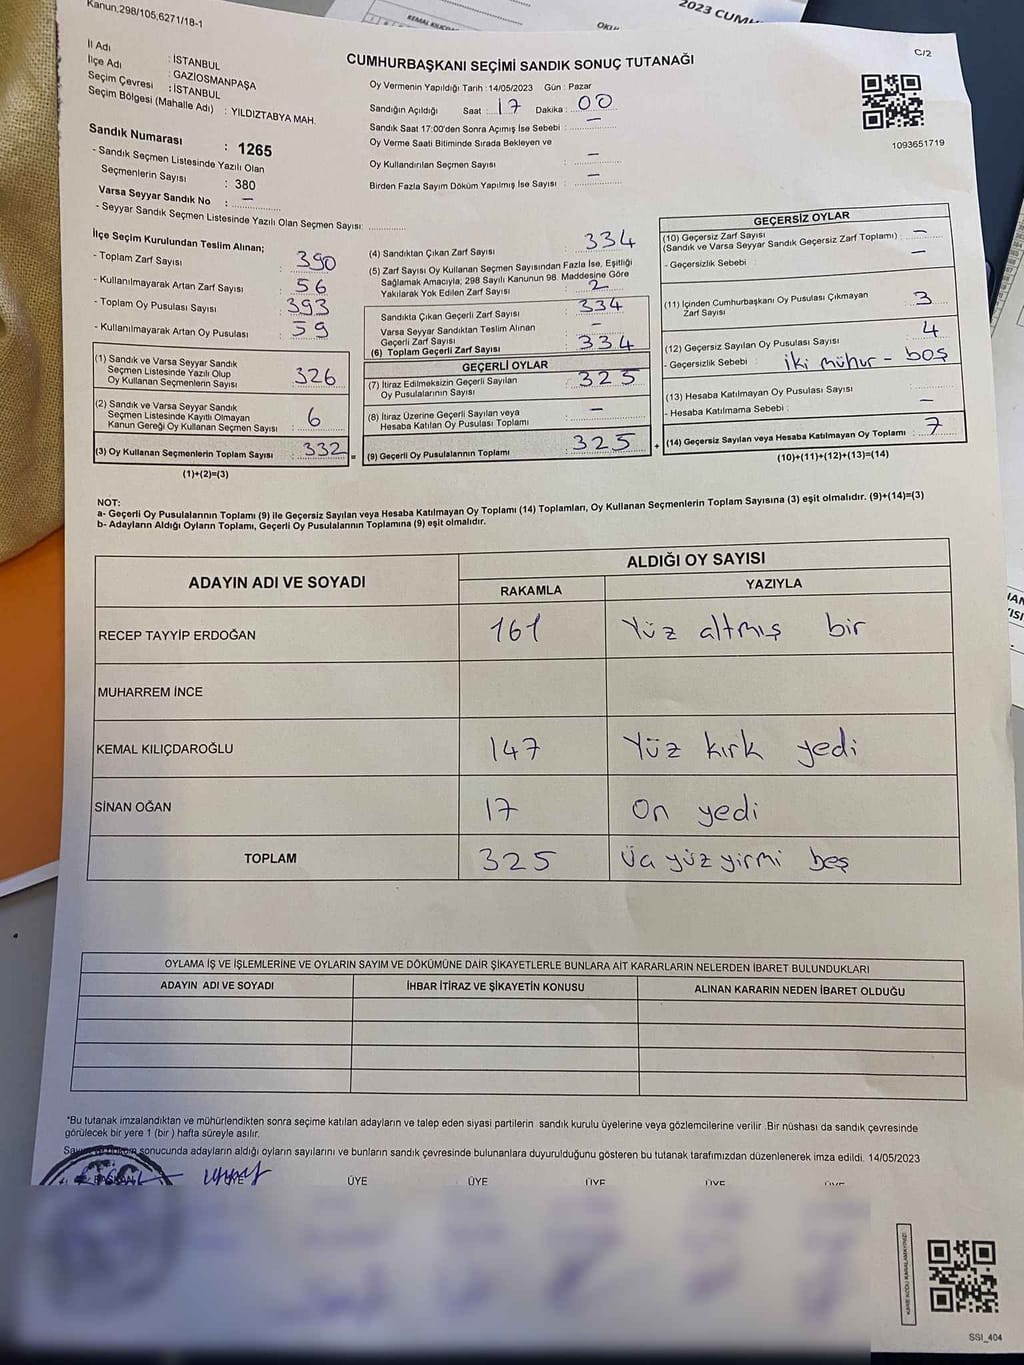 Kanun,298/105,6271/18-1
2023 CUMH
C/2
CUMHURBAŞKANI SEÇİMİ SANDIK SONUÇ TUTANAĞI
İl Adı : İSTANBUL
İlçe Adı : GAZİOSMANPAŞA
Seçim Çevresi : İSTANBUL
Seçim Bölgesi (Mahalle Adı) : YILDIZTABYA MAH.
Sandık Numarası : 1265
- Sandık Seçmen Listesinde Yazılı Olan
Seçmenlerin Sayısı : 380
Varsa Seyyar Sandık No : —
- Seyyar Sandık Seçmen Listesinde Yazılı Olan Seçmen Sayısı:
Oy Vermenin Yapıldığı Tarih : 14/05/2023 Gün : Pazar
Sandığın Açıldığı Saat : 17 Dakika : 00
Sandık Saat 17:00'den Sonra Açımış İse Sebebi : —
Oy Verme Saati Bitiminde Sırada Bekleyen ve
Oy Kullandırılan Seçmen Sayısı : —
Birden Fazla Sayım Döküm Yapılmış İse Sayısı : —
1093651719
İlçe Seçim Kurulundan Teslim Alınan;
- Toplam Zarf Sayısı : 390
- Kullanılmayarak Artan Zarf Sayısı : 56
- Toplam Oy Pusulası Sayısı : 393
- Kullanılmayarak Artan Oy Pusulası : 59
(1) Sandık ve Varsa Seyyar Sandık
Seçmen Listesinde Yazılı Olup
Oy Kullanan Seçmenlerin Sayısı : 326
(2) Sandık ve Varsa Seyyar Sandık
Seçmen Listesinde Kayıtlı Olmayan
Kanun Gereği Oy Kullanan Seçmen Sayısı : 6
(3) Oy Kullanan Seçmenlerin Toplam Sayısı : 332
(1)+(2)=(3)
(4) Sandıktan Çıkan Zarf Sayısı : 334
(5) Zarf Sayısı Oy Kullanan Seçmen Sayısından Fazla İse, Eşitliği
Sağlamak Amacıyla; 298 Sayılı Kanunun 98. Maddesine Göre
Yakılarak Yok Edilen Zarf Sayısı : 2
Sandıkta Çıkan Geçerli Zarf Sayısı : 334
Varsa Seyyar Sandıktan Teslim Alınan
Geçerli Zarf Sayısı : —
(6) Toplam Geçerli Zarf Sayısı : 334
GEÇERLİ OYLAR
(7) İtiraz Edilmeksizin Geçerli Sayılan
Oy Pusulalarının Sayısı : 325
(8) İtiraz Üzerine Geçerli Sayılan veya
Hesaba Katılan Oy Pusulası Toplamı : —
(9) Geçerli Oy Pusulalarının Toplamı : 325
GEÇERSİZ OYLAR
(10) Geçersiz Zarf Sayısı
(Sandık ve Varsa Seyyar Sandık Geçersiz Zarf Toplamı) : —
- Geçersizlik Sebebi : —
(11) İçinden Cumhurbaşkanı Oy Pusulası Çıkmayan
Zarf Sayısı : 3
(12) Geçersiz Sayılan Oy Pusulası Sayısı : 4
- Geçersizlik Sebebi : iki mühür - boş
(13) Hesaba Katılmayan Oy Pusulası Sayısı
- Hesaba Katılmama Sebebi : —
(14) Geçersiz Sayılan veya Hesaba Katılmayan Oy Toplamı : 7
(10)+(11)+(12)+(13)=(14)
NOT:
a- Geçerli Oy Pusulalarının Toplamı (9) ile Geçersiz Sayılan veya Hesaba Katılmayan Oy Toplamı (14) Toplamları, Oy Kullanan Seçmenlerin Toplam Sayısına (3) eşit olmalıdır. (9)+(14)=(3)
b- Adayların Aldığı Oyların Toplamı, Geçerli Oy Pusulalarının Toplamına (9) eşit olmalıdır.
ADAYIN ADI VE SOYADI ALDIĞI OY SAYISI
RAKAMLA YAZIYLA
RECEP TAYYİP ERDOĞAN 161 Yüz altmış bir
MUHARREM İNCE
KEMAL KILIÇDAROĞLU 147 Yüz kırk yedi
SİNAN OĞAN 17 On yedi
TOPLAM 325 Üç yüz yirmi beş
OYLAMA İŞ VE İŞLEMLERİNE VE OYLARIN SAYIM VE DÖKÜMÜNE DAİR ŞİKAYETLERLE BUNLARA AİT KARARLARIN NELERDEN İBARET BULUNDUKLARI
ADAYIN ADI VE SOYADI İHBAR İTİRAZ VE ŞİKAYETİN KONUSU ALINAN KARARIN NEDEN İBARET OLDUĞU
*Bu tutanak imzalandıktan ve mühürlendikten sonra seçime katılan adayların ve talep eden siyasi partilerin sandık kurulu üyelerine veya gözlemcilerine verilir .Bir nüshası da sandık çevresinde
görülecek bir yere 1 (bir ) hafta süreyle asılır.
sonucunda adayların aldığı oyların sayılarını ve bunların sandık çevresinde bulunanlara duyurulduğunu gösteren bu tutanak tarafımızdan düzenlenerek imza edildi. 14/05/2023
BAŞKAN ÜYE ÜYE ÜYE ÜYE ÜYE
KARE KODU KARALAMAYINIZ!
SSI_404